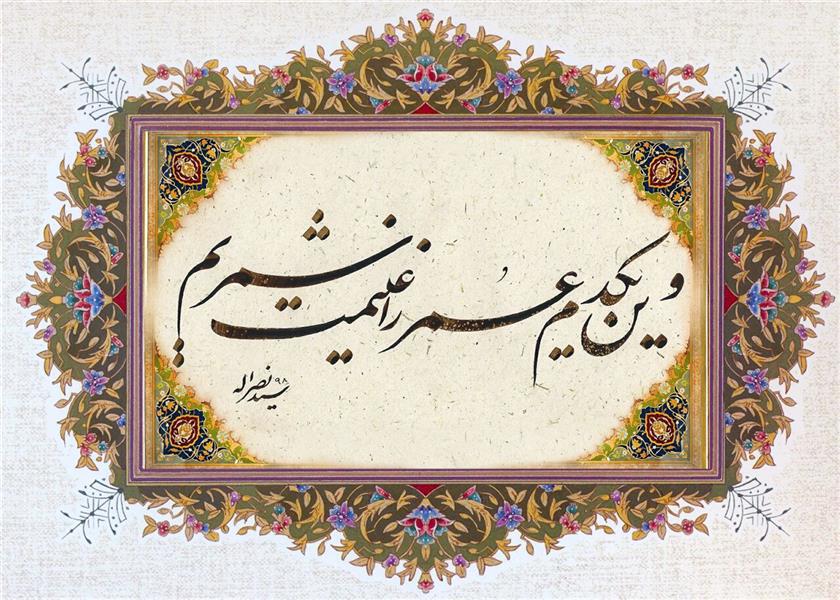 وین یکدم عمر را غنیمت شمریم
سید نصراله ۹۸